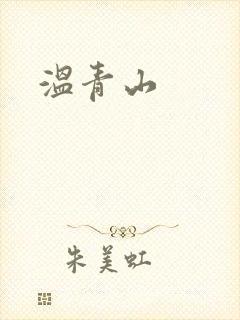 温青山
朱美虹